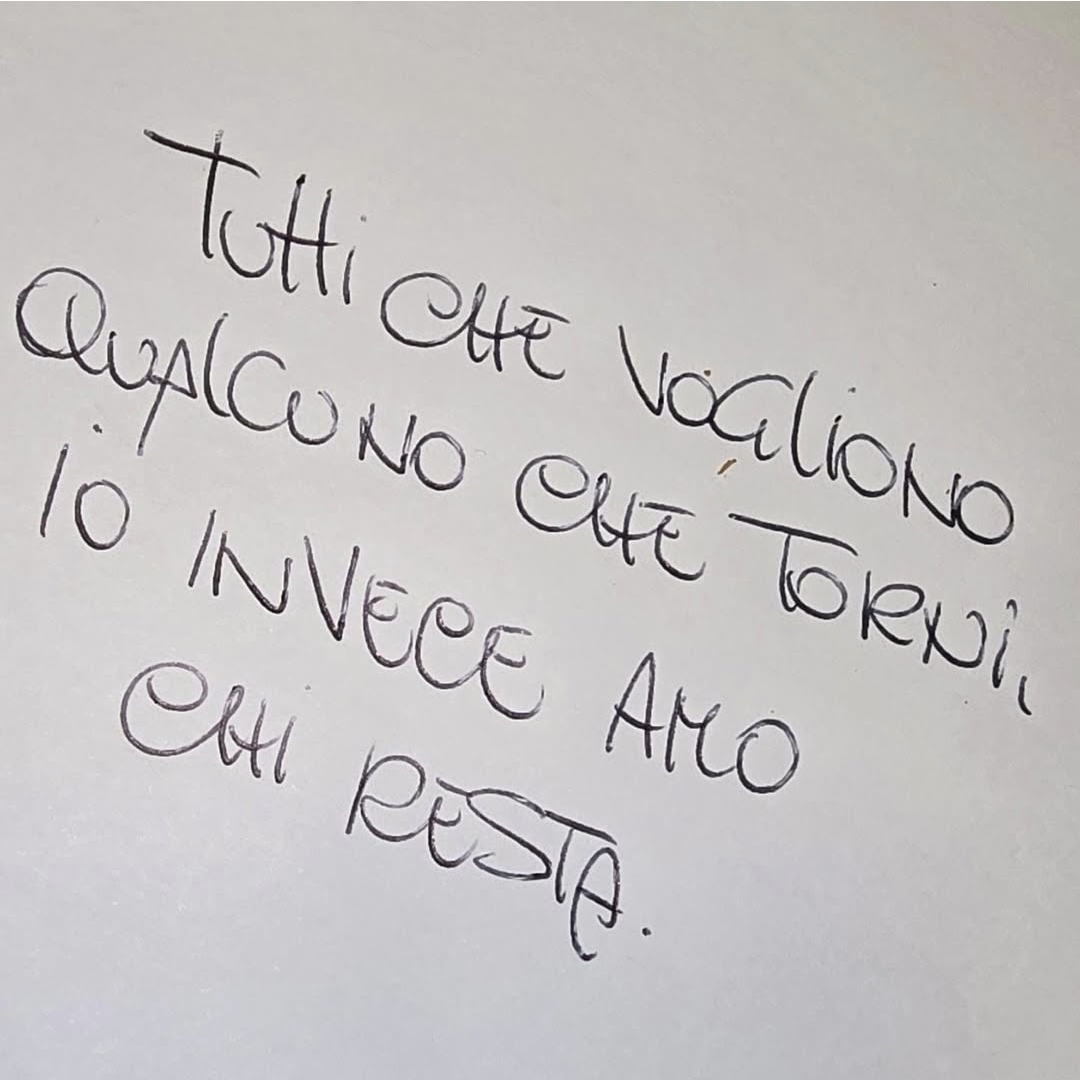 Tutti CHE VOGLIONO
QUALCUNO CHE TORNI,
IO INVECE AMO
CHI RESTA.